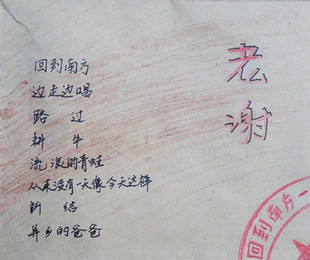 回到南方
边走边唱
路 过
耕 牛
流浪的青蛙
从来没有一天像今天这样
新 结
异乡的爸爸
老
谢
回到南方一